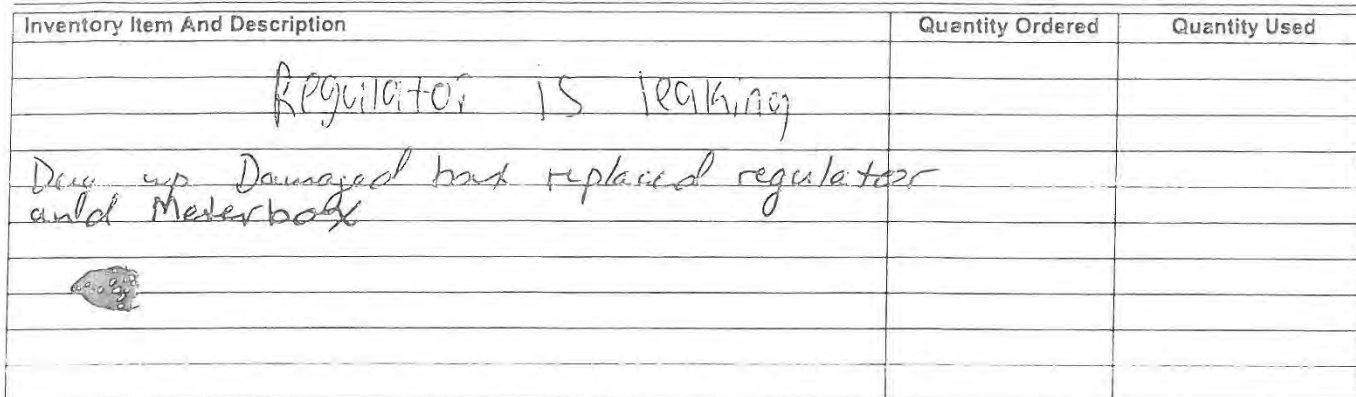 Inventory Item And Description Quantity Ordered Quantity Used
Regulator is leaking
Dug up Damaged box replaced regulator
and Meterbox